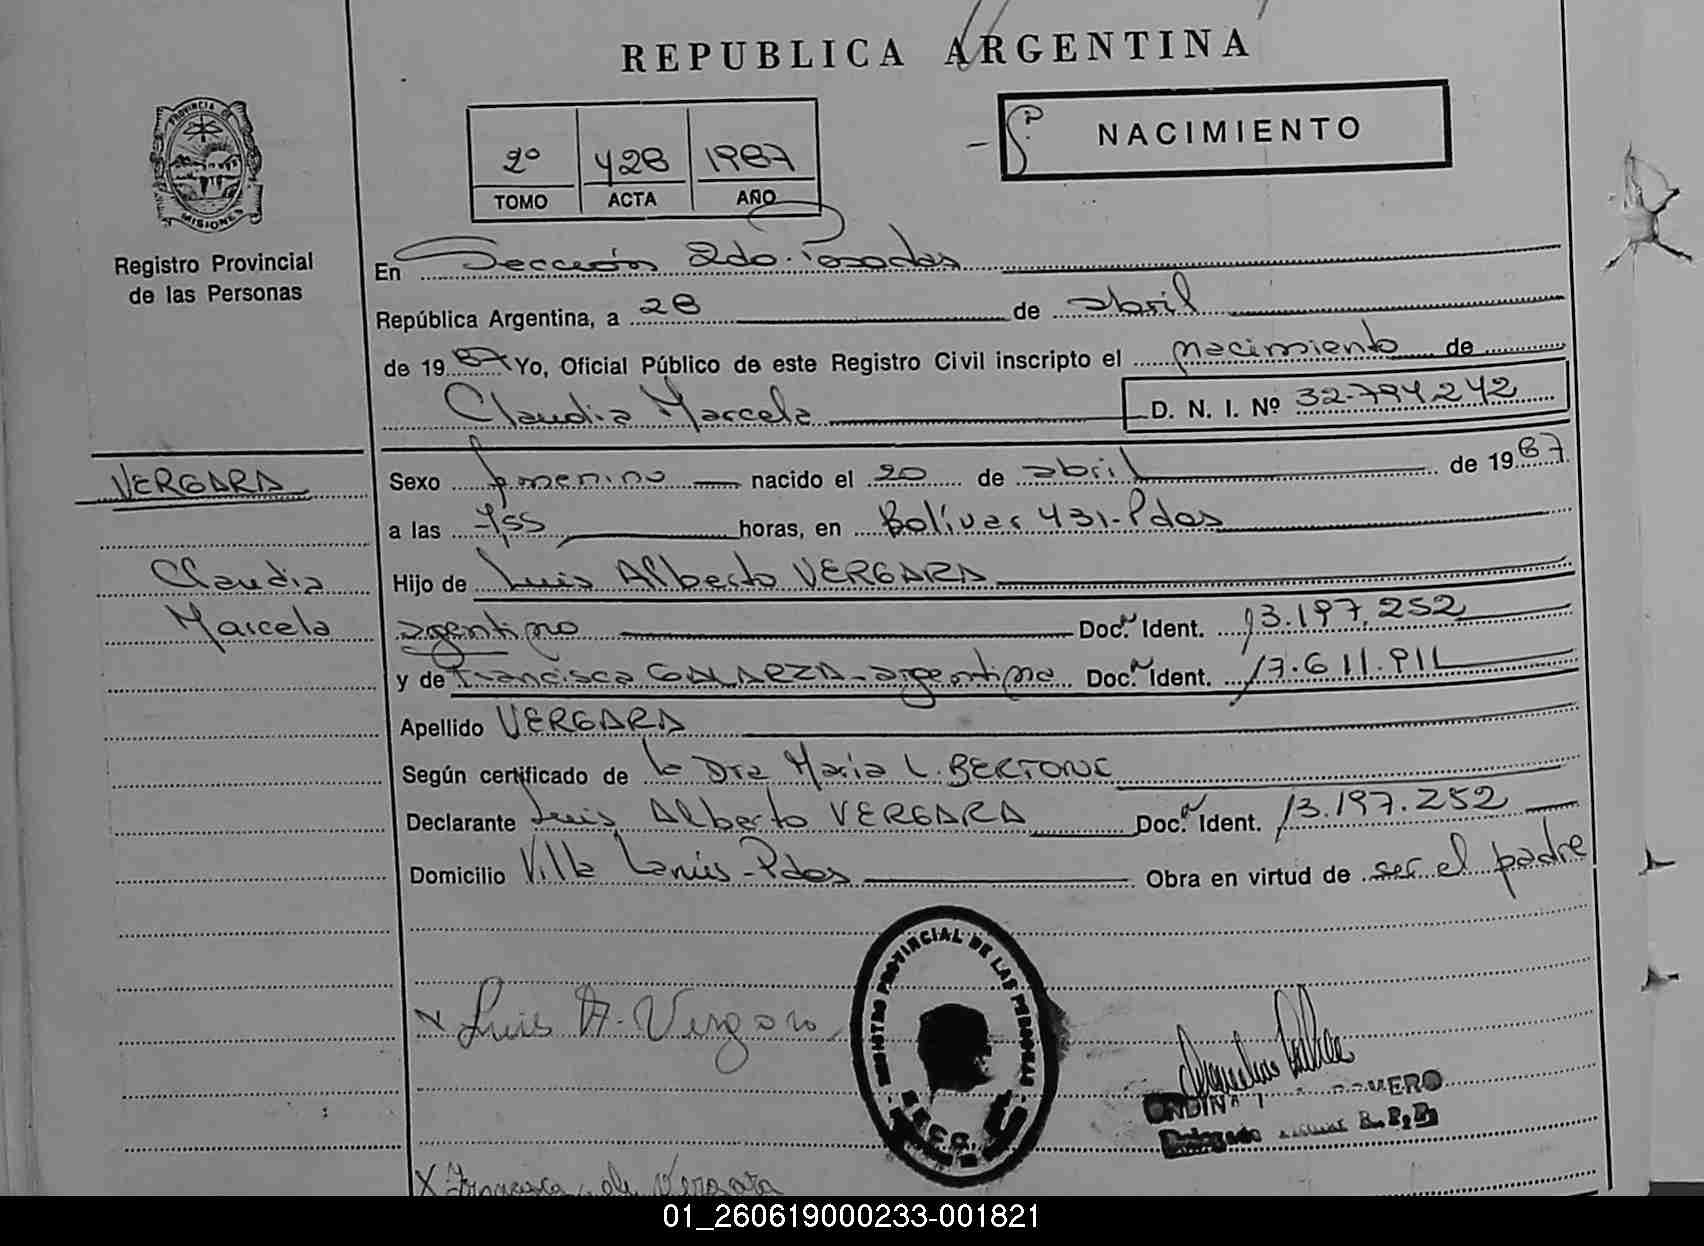 REPUBLICA ARGENTINA
PROVINCIA DE
MISIONES
Registro Provincial
de las Personas
2º 428 1987
TOMO ACTA AÑO
NACIMIENTO
En Sección 2da. Posadas
República Argentina, a 28 de abril
de 1987 Yo, Oficial Público de este Registro Civil inscripto el nacimiento de
Claudia Marcela D. N. I. Nº 32.794.242
VERGARA
Claudia
Marcela
Sexo femenino nacido el 20 de abril de 1987
a las 7,55 horas, en Bolívar 431-Pdas
Hijo de Luis Alberto VERGARA
argentino Doc. Ident. 13.197.252
y de Francisca GALARZA-argentina Doc. Ident. 17.611.911
Apellido VERGARA
Según certificado de la Dra María L. BERTONE
Declarante Luis Alberto VERGARA Doc. Ident. 13.197.252
Domicilio Villa Lanús-Pdas Obra en virtud de ser el padre
REGISTRO PROVINCIAL DE LAS PERSONAS
x Luis A. Vergara
Delegado
X Francisca de Vergara
01_260619000233-001821